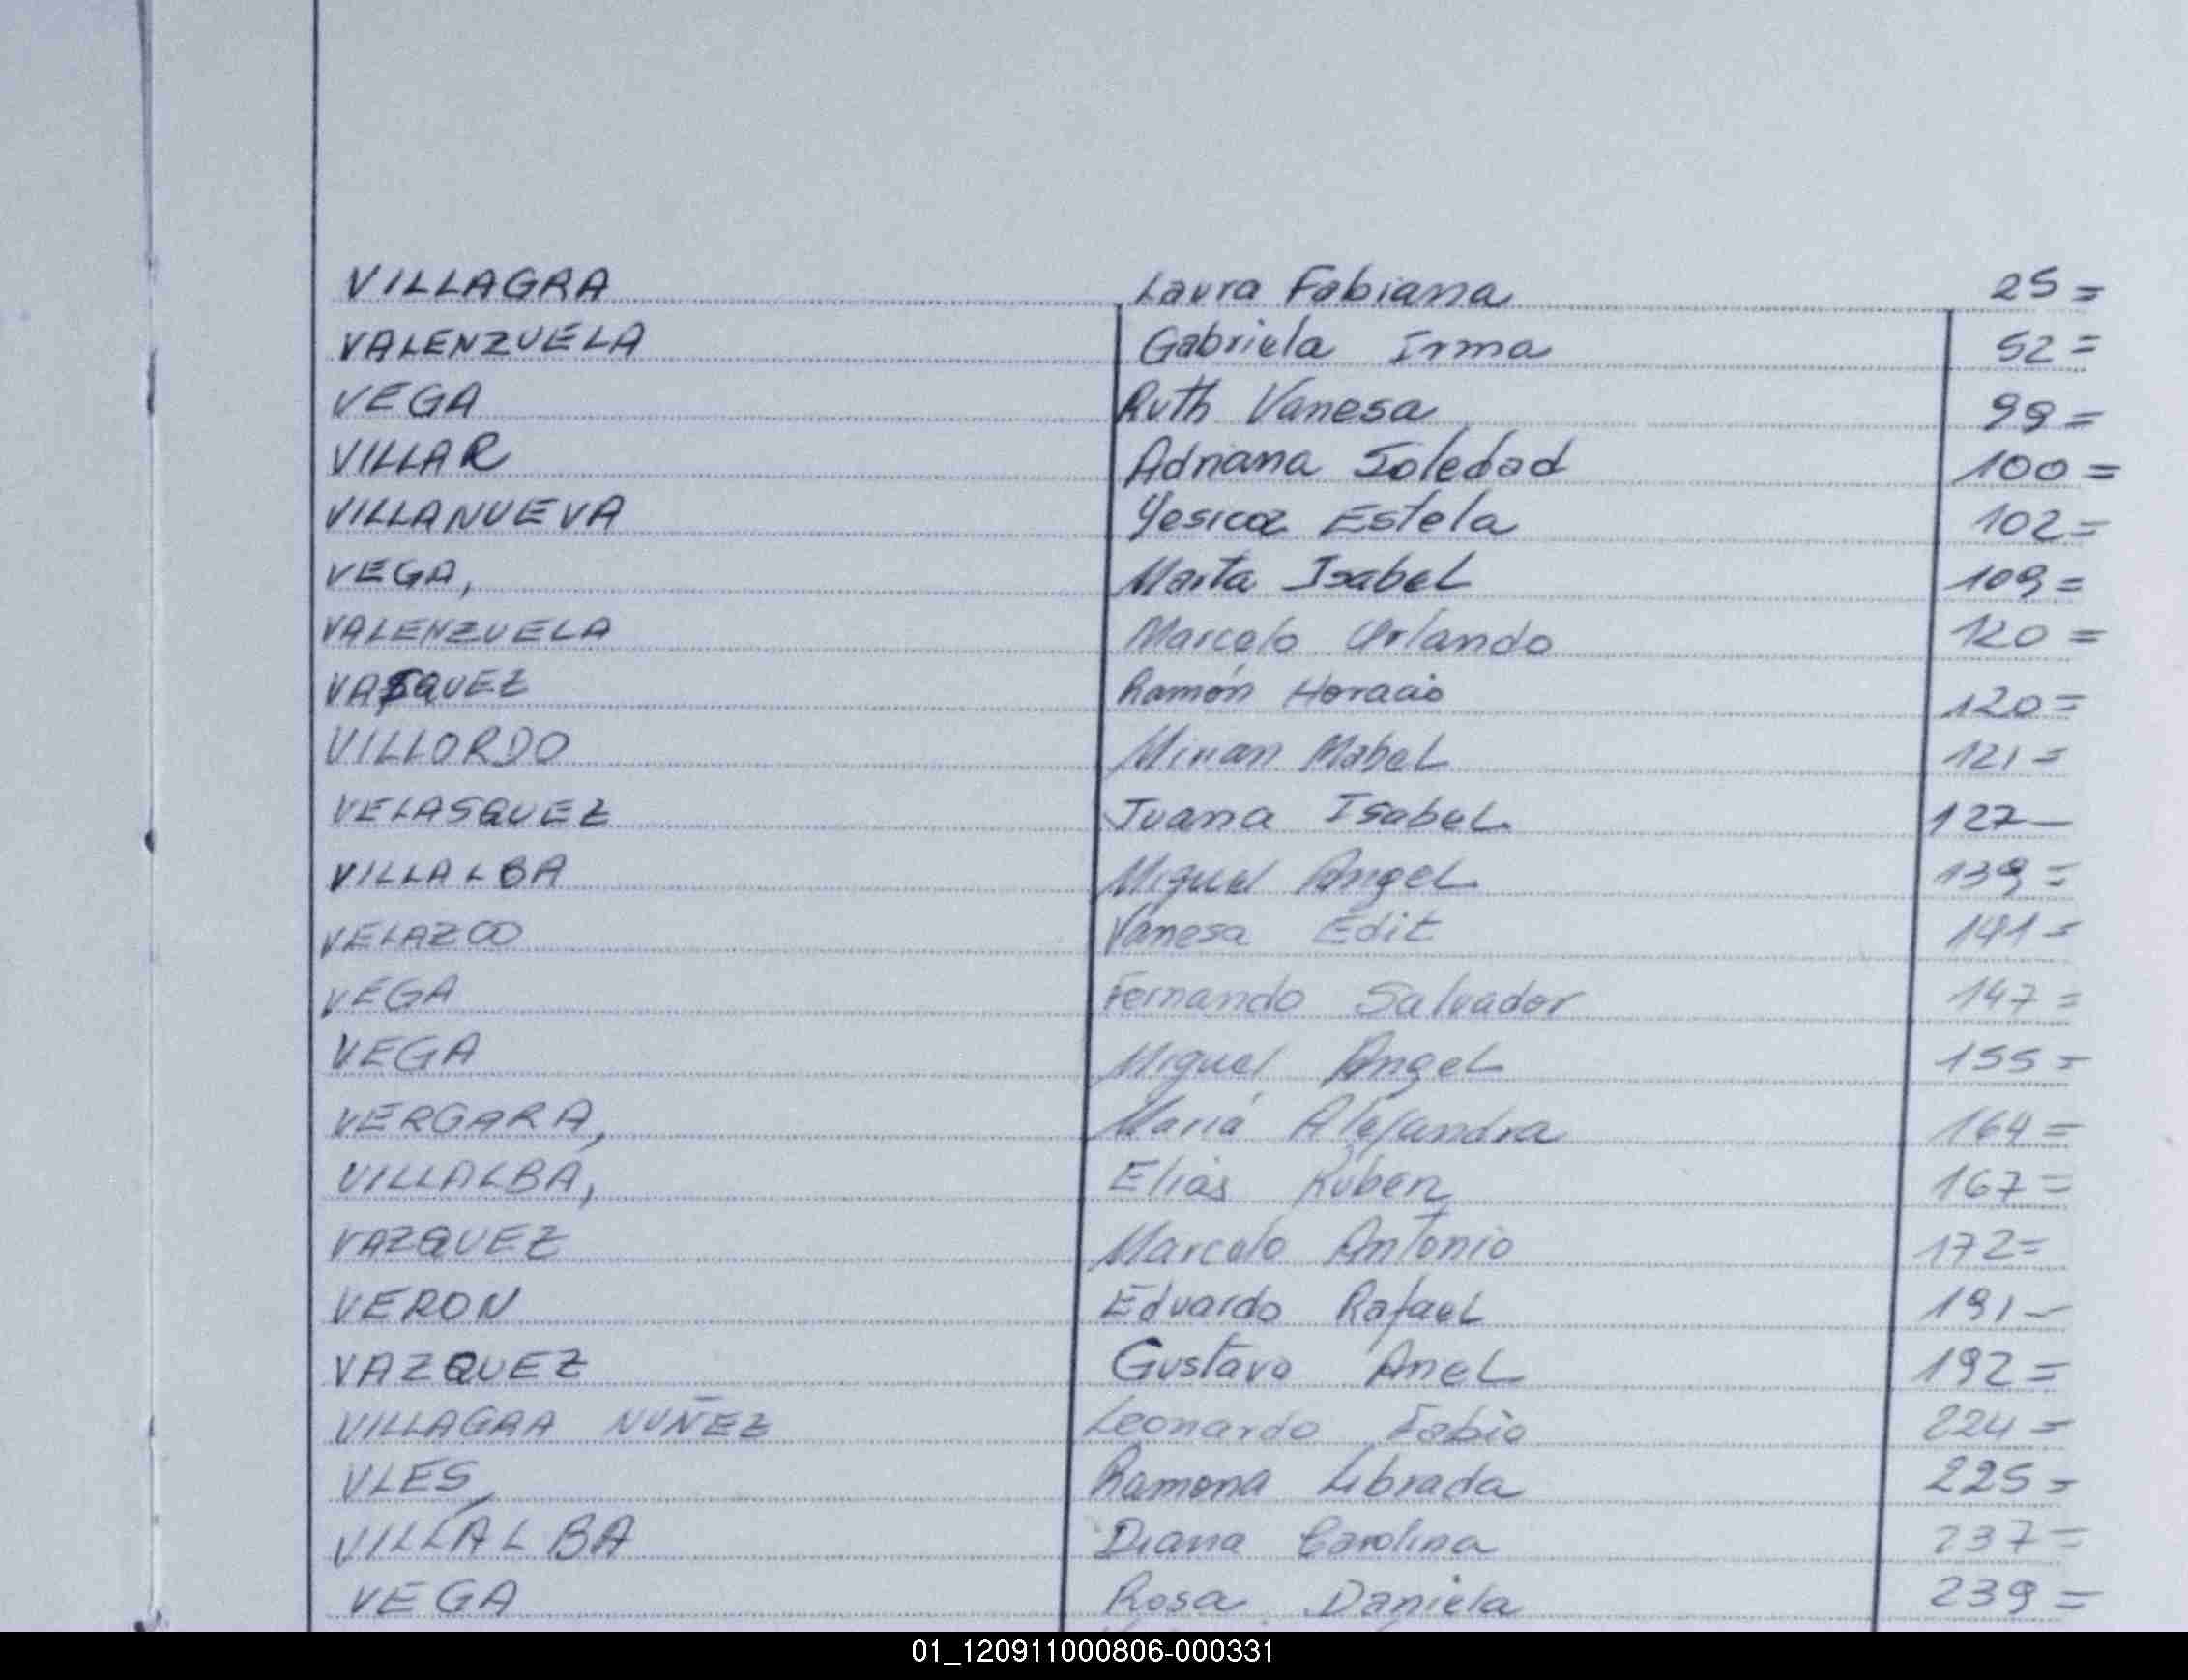 VILLAGRA Laura Fabiana 25=
VALENZUELA Gabriela Irma 52=
VEGA Ruth Vanesa 99=
VILLAR Adriana Soledad 100=
VILLANUEVA Yesica Estela 102=
VEGA, Marta Isabel 109=
VALENZUELA Marcelo Orlando 120=
VASQUEZ Ramón Horacio 120=
VILLORDO Mirian Mabel 121=
VELASQUEZ Juana Isabel 127-
VILLALBA Miguel Angel 139=
VELAZCO Vanesa Edit 141=
VEGA Fernando Salvador 147=
VEGA Miguel Angel 155=
VERGARA, María Alejandra 164=
VILLALBA, Elias Rúben 167=
VAZQUEZ Marcelo Antonio 172=
VERON Eduardo Rafael 191-
VAZQUEZ Gustavo Ariel 192=
VILLAGRA NUÑEZ Leonardo Fabio 224=
VLES Ramona Librada 225=
VILLALBA Diana Carolina 237=
VEGA Rosa Daniela 239=
01_120911000806-000331